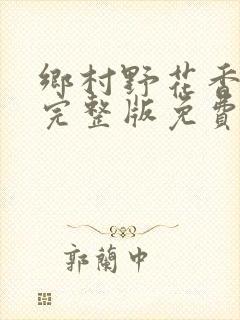 鄉村野花香
完整版免費
郭蘭中